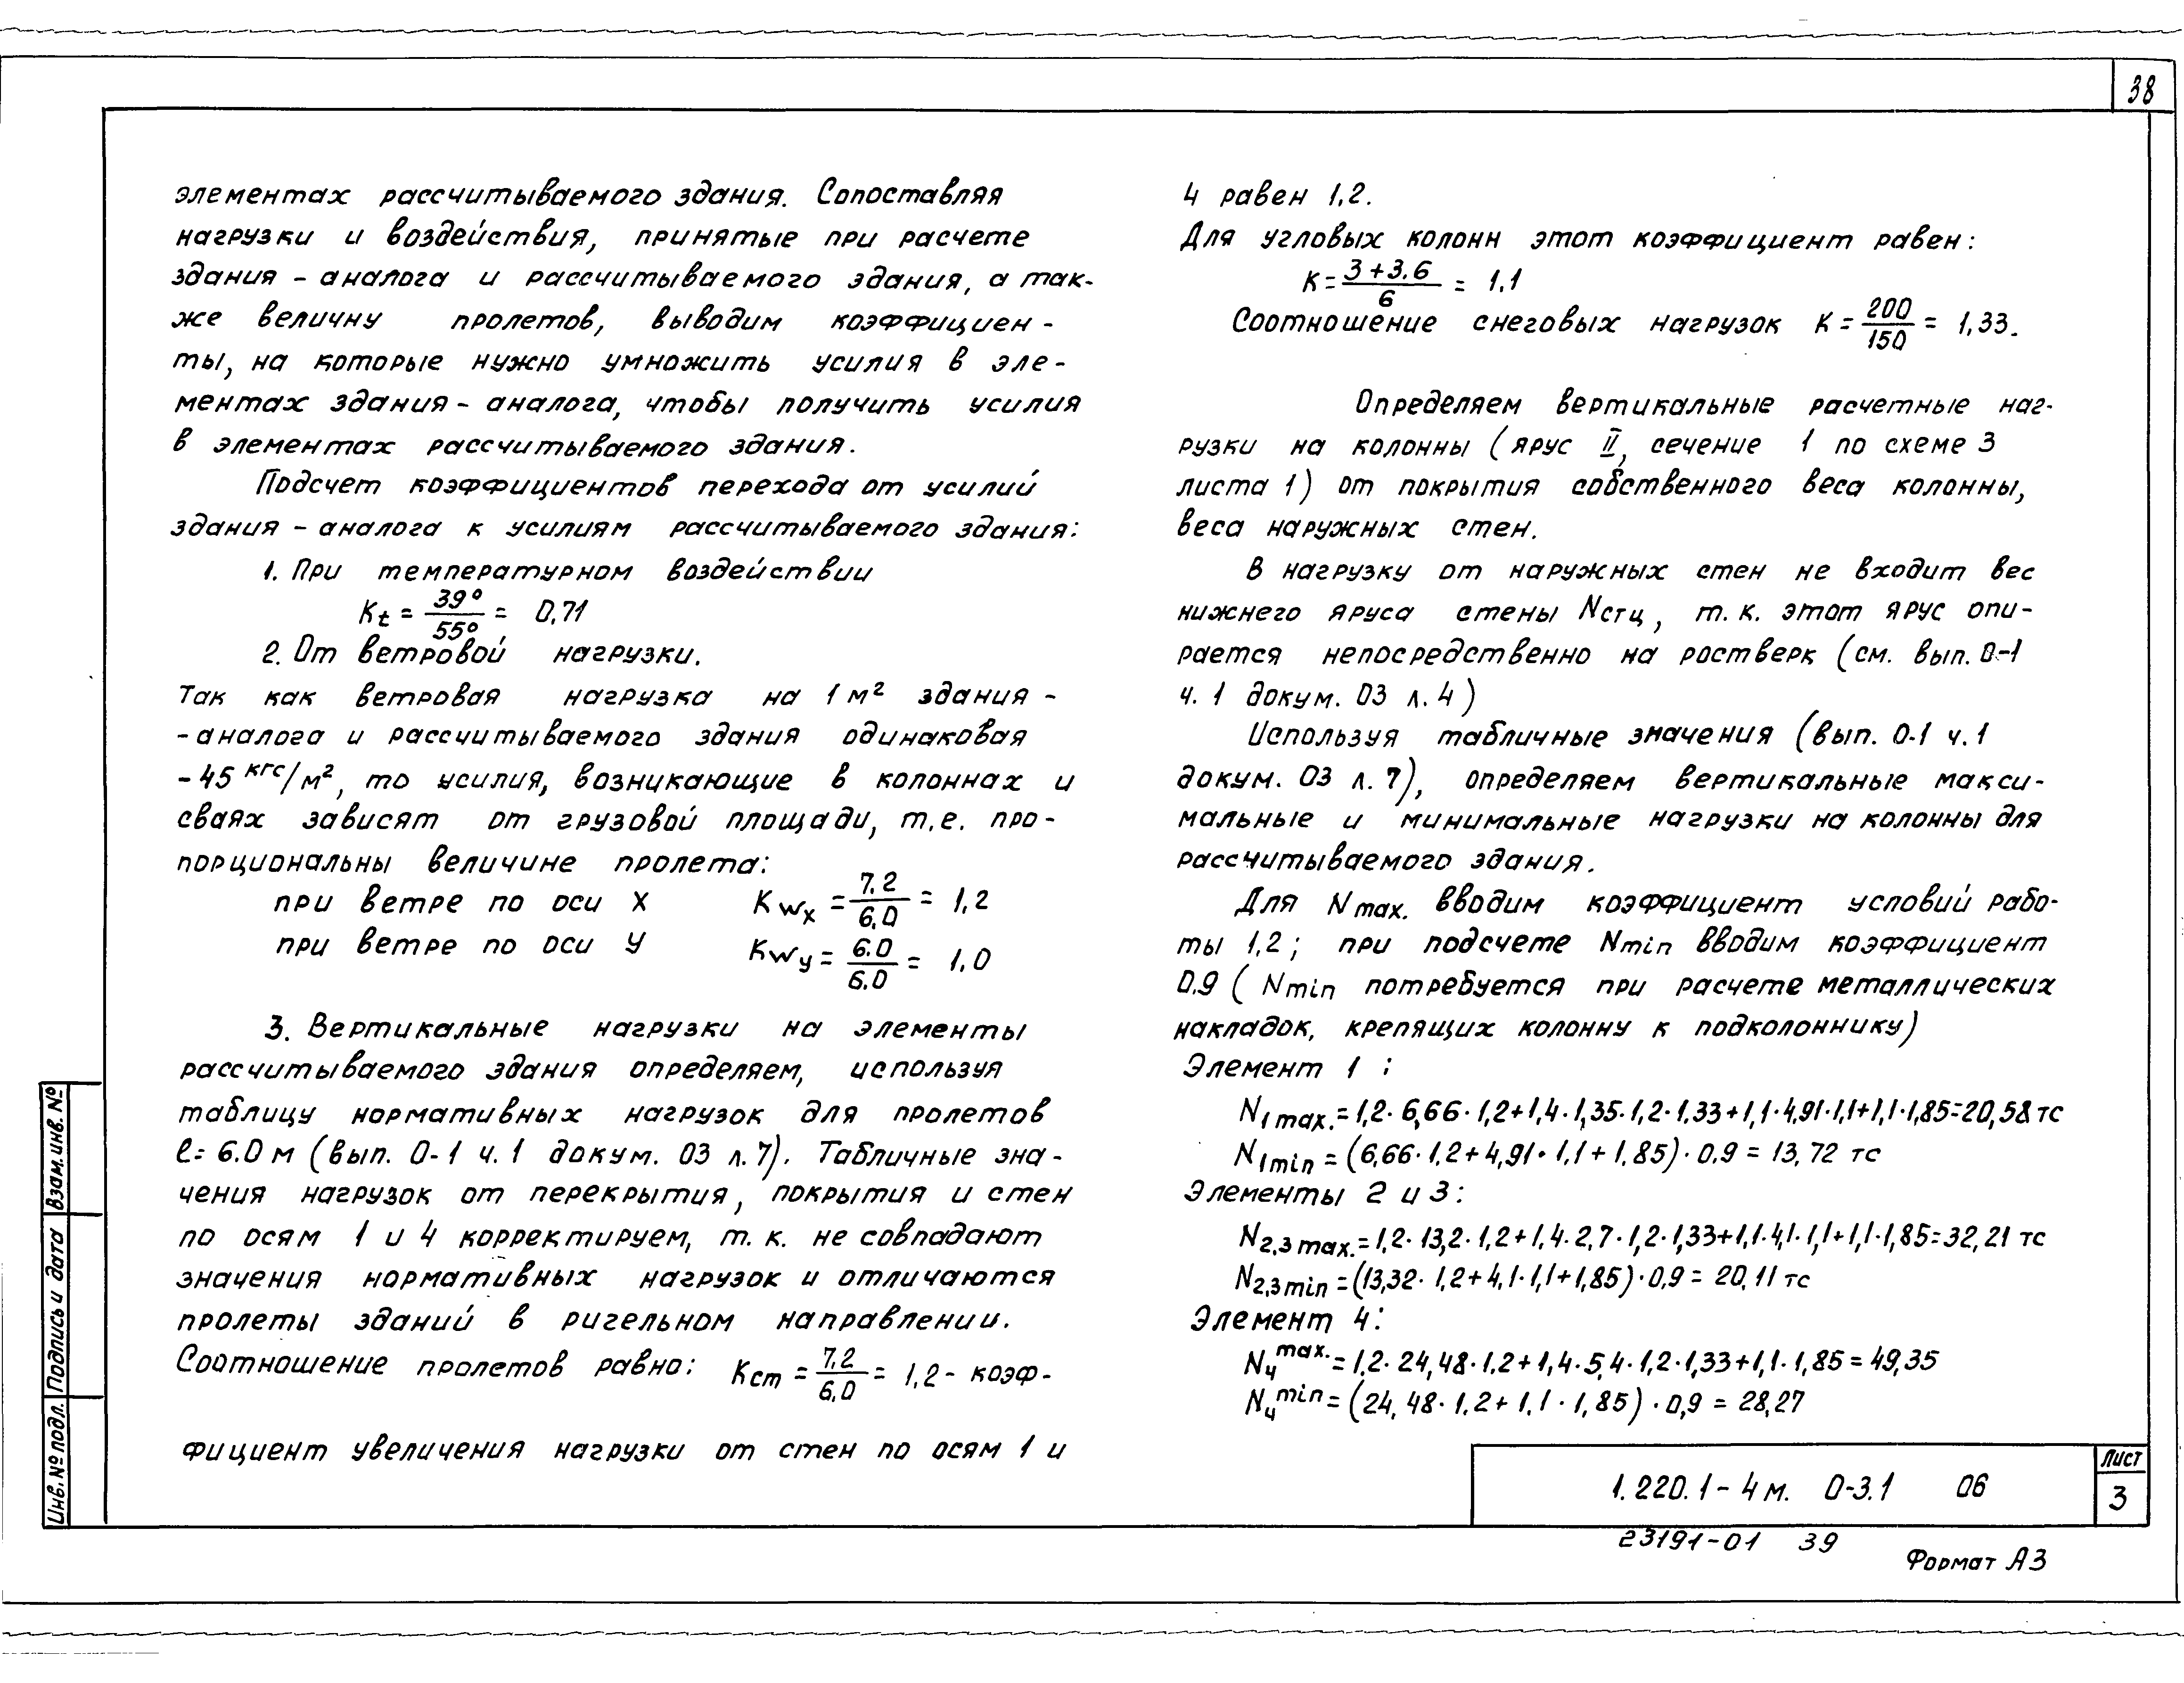 38
элементах рассчитываемого здания. Сопоставляя
нагрузки и воздействия, принятые при расчете
здания - аналога и рассчитываемого здания, а так-
же величну пролетов, выводим коэффициен-
ты, на которые нужно умножить усилия в эле-
ментах здания - аналога, чтобы получить усилия
в элементах рассчитываемого здания.
Подсчет коэффициентов перехода от усилий
здания - аналога к усилиям рассчитываемого здания:
1. При температурном воздействии
Kt = 39°/55° = 0,71
2. От ветровой нагрузки.
Так как ветровая нагрузка на 1 м² здания -
- аналога и рассчитываемого здания одинаковая
- 45 кгс/м², то усилия, возникающие в колоннах и
сваях зависят от грузовой площади, т.е. про-
порциональны величине пролета:
при ветре по оси X Kwx = 7.2/6.0 = 1,2
при ветре по оси У Kwy = 6.0/6.0 = 1,0
3. Вертикальные нагрузки на элементы
рассчитываемого здания определяем, используя
таблицу нормативных нагрузок для пролетов
ℓ = 6.0 м (вып. 0-1 ч. 1 докум. 03 л. 7). Табличные зна-
чения нагрузок от перекрытия, покрытия и стен
по осям 1 и 4 корректируем, т. к. не совпадают
значения нормативных нагрузок и отличаются
пролеты зданий в ригельном направлении.
Соотношение пролетов равно: Kст = 7.2/6.0 = 1,2 - коэф-
фициент увеличения нагрузки от стен по осям 1 и
4 равен 1,2.
Для угловых колонн этот коэффициент равен:
K = 3+3.6/6 = 1.1
Соотношение снеговых нагрузок K = 200/150 = 1,33.
Определяем вертикальные расчетные наг-
рузки на колонны (ярус II, сечение 1 по схеме 3
листа 1) от покрытия собственного веса колонны,
веса наружных стен.
В нагрузку от наружных стен не входит вес
нижнего яруса стены Nстц, т. к. этот ярус опи-
рается непосредственно на ростверк (см. вып. 0-1
ч. 1 докум. 03 л. 4)
Используя табличные значения (вып. 0-1 ч. 1
докум. 03 л. 7), определяем вертикальные макси-
мальные и минимальные нагрузки на колонны для
рассчитываемого здания.
Для Nmax. вводим коэффициент условий рабо-
ты 1,2; при подсчете Nmin вводим коэффициент
0.9 (Nmin потребуется при расчете металлических
накладок, крепящих колонну к подколоннику)
Элемент 1:
N1max. = 1,2 · 6,66 · 1,2 + 1,4 · 1,35 · 1,2 · 1,33 + 1,1 · 4,91 · 1,1 + 1,1 · 1,85 = 20,58 тс
N1min = (6,66 · 1,2 + 4,91 · 1,1 + 1,85) · 0.9 = 13,72 тс
Элементы 2 и 3:
N2,3max. = 1,2 · 13,2 · 1,2 + 1,4 · 2,7 · 1,2 · 1,33 + 1,1 · 4,1 · 1,1 + 1,1 · 1,85 = 32,21 тс
N2,3min = (13,32 · 1,2 + 4,1 · 1,1 + 1,85) · 0,9 = 20,11 тс
Элемент 4:
N4max. = 1,2 · 24,48 · 1,2 + 1,4 · 5,4 · 1,2 · 1,33 + 1,1 · 1,85 = 49,35
N4min = (24,48 · 1,2 + 1,1 · 1,85) · 0,9 = 28,27
Инв. № подл. Подпись и дата Взам. инв. №
1.220.1 - 4 м. 0-3.1 06
Лист
3
23191-01 39
Формат А3